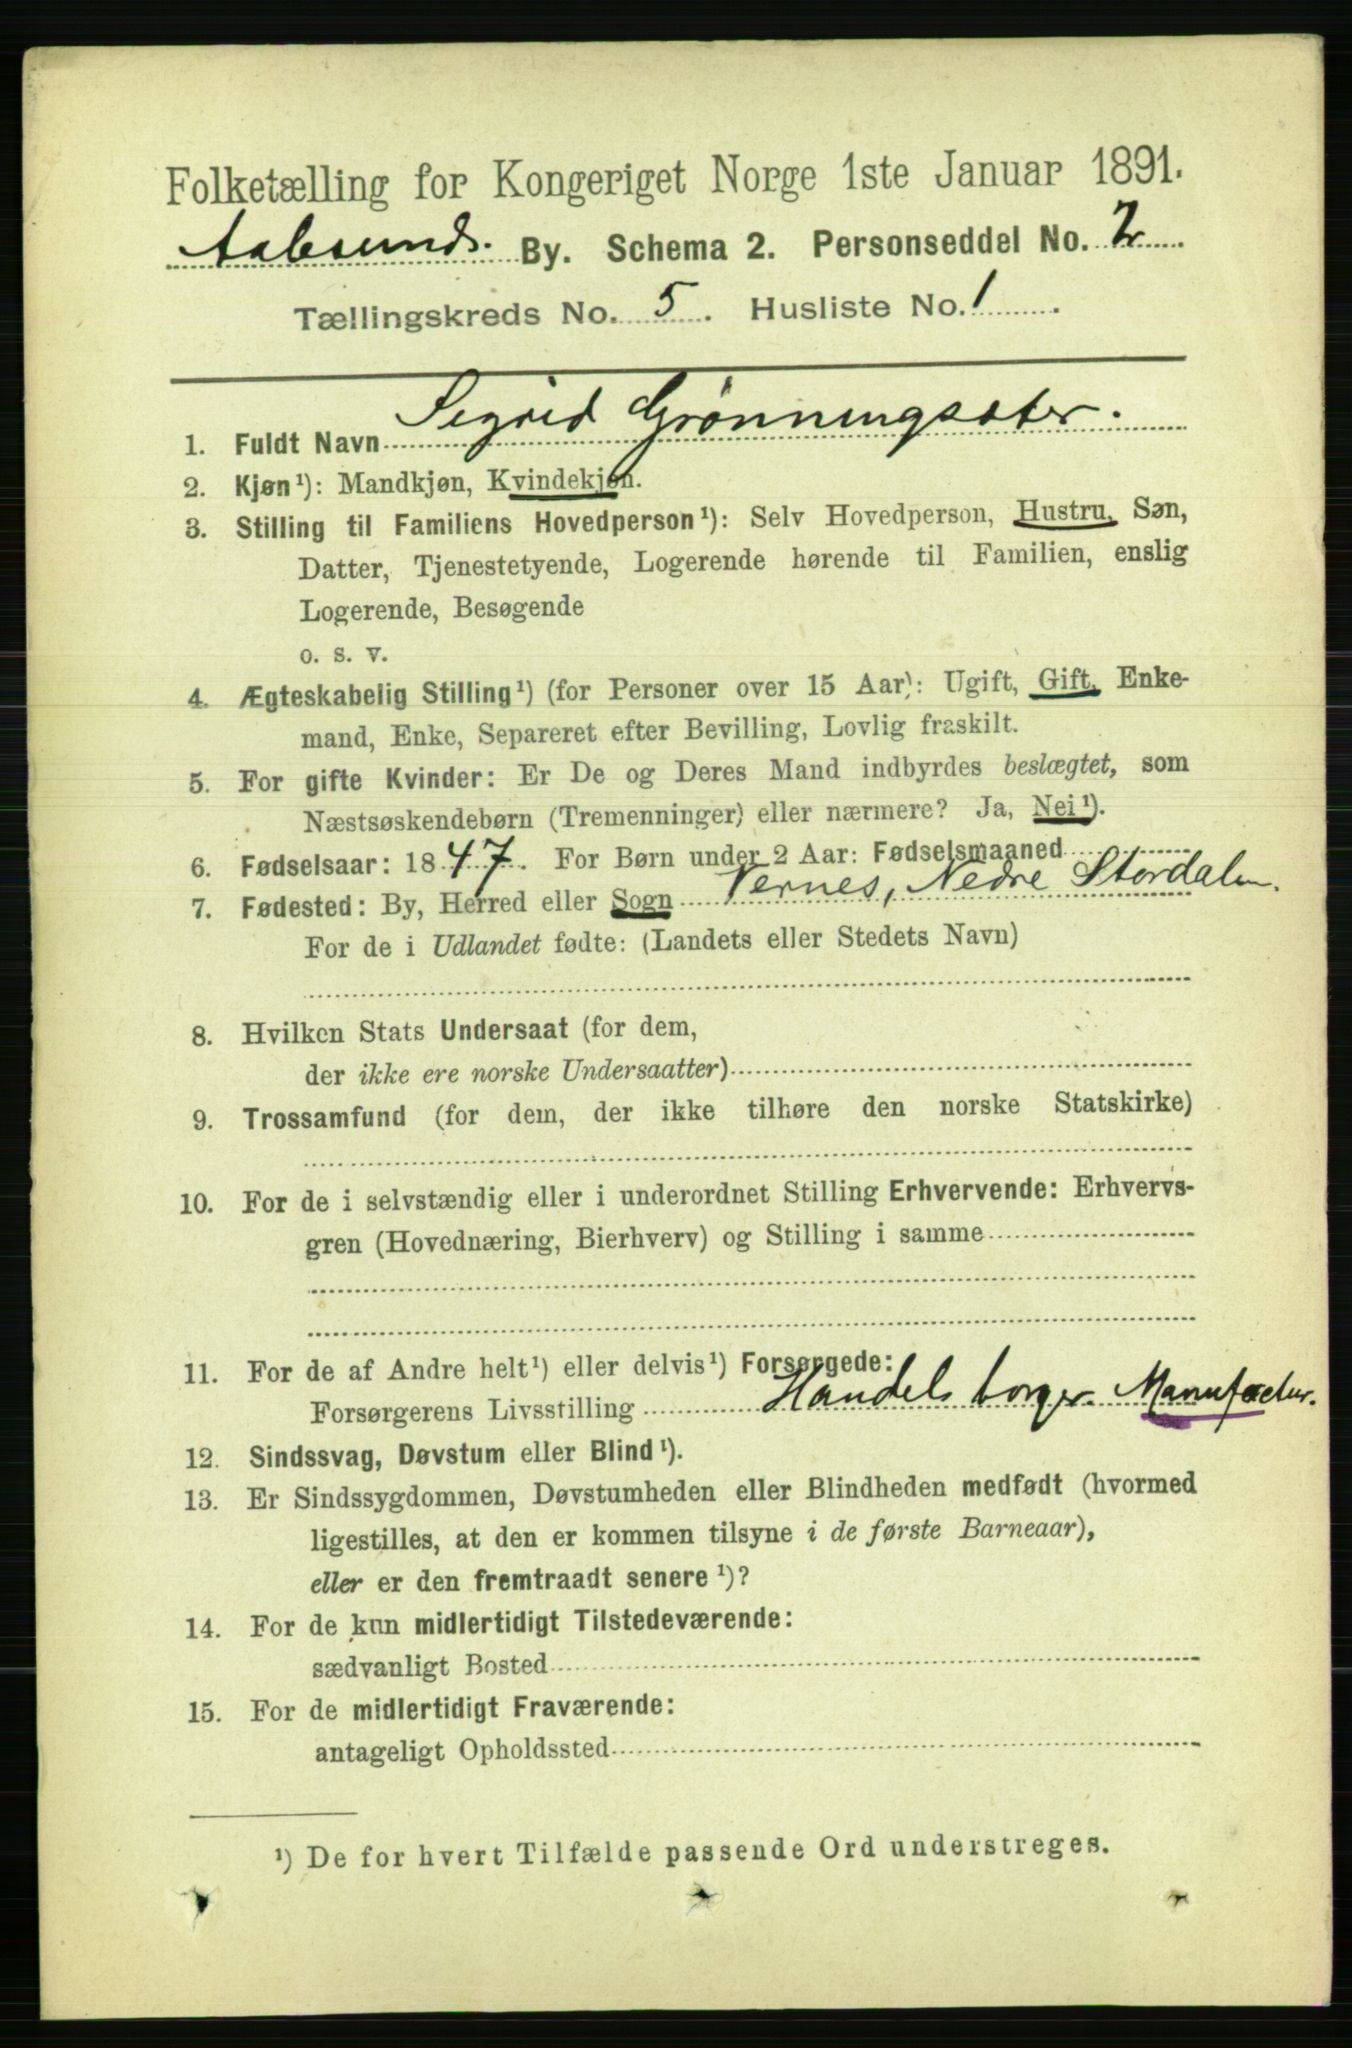 Folketælling for Kongeriget Norge 1ste Januar 1891.
Aalesunds. By. Schema 2. Personseddel No. 2
Tællingskreds No. 5. Husliste No. 1.
1. Fuldt Navn Sigrid Grønningsæter.
2. Kjøn¹): Mandkjøn, Kvindekjøn.
3. Stilling til Familiens Hovedperson¹): Selv Hovedperson, Hustru, Søn,
Datter, Tjenestetyende, Logerende hørende til Familien, enslig
Logerende, Besøgende
o. s. v.
4. Ægteskabelig Stilling¹) (for Personer over 15 Aar): Ugift, Gift, Enke-
mand, Enke, Separeret efter Bevilling, Lovlig fraskilt.
5. For gifte Kvinder: Er De og Deres Mand indbyrdes beslægtet, som
Næstsøskendebørn (Tremenninger) eller nærmere? Ja, Nei¹).
6. Fødselsaar: 1847. For Børn under 2 Aar: Fødselsmaaned
7. Fødested: By, Herred eller Sogn Vernes, Nedre Stordalen.
For de i Udlandet fødte: (Landets eller Stedets Navn)
8. Hvilken Stats Undersaat (for dem,
der ikke ere norske Undersaatter)
9. Trossamfund (for dem, der ikke tilhøre den norske Statskirke)
10. For de i selvstændig eller i underordnet Stilling Erhvervende: Erhvervs-
gren (Hovednæring, Bierhverv) og Stilling i samme
11. For de af Andre helt¹) eller delvis¹) Forsørgede:
Forsørgerens Livsstilling Handelsborger. Manufactur.
12. Sindssvag, Døvstum eller Blind¹).
13. Er Sindssygdommen, Døvstumheden eller Blindheden medfødt (hvormed
ligestilles, at den er kommen tilsyne i de første Barneaar),
eller er den fremtraadt senere¹)?
14. For de kun midlertidigt Tilstedeværende:
sædvanligt Bosted
15. For de midlertidigt Fraværende:
antageligt Opholdssted
¹) De for hvert Tilfælde passende Ord understreges.